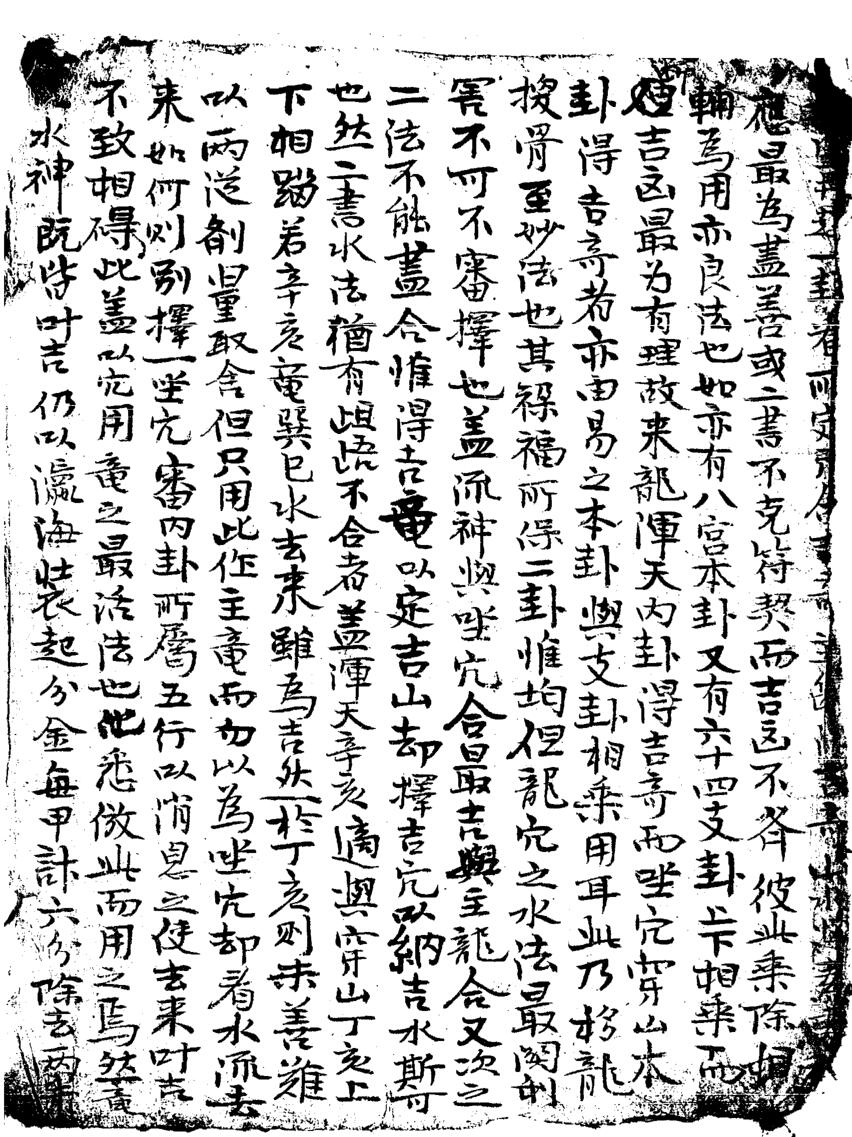 一卦者所定
應最為盡善或二書不克符契而吉凶不齊彼此乘除相
輔為用亦良法也如亦有八宮本卦又有六十四支卦上下相乘而
吉凶最为有理故来龍渾天内卦得吉竒而坐穴穿山本
卦得吉竒者亦由易之本卦與支卦相乘用耳此乃移龍
換骨至妙法也其禄福所係二卦惟均但龍穴之水法最関利
害不可不審擇也盖流神與坐穴合最吉與主龍合又次之
二法不能盖合惟得吉竜以定吉山却擇吉穴以納吉水斯可
也然二書水法猶有齟齬不合者盖渾天辛亥適與穿山丁亥上
下相蹋若辛亥竜巽巳水去来雖為吉然於丁亥則未善難
以兩従劑量取舍但只用此作主竜而勿以為坐穴却看水流去
来如何则别擇一坐穴審内卦所属五行以消息之使去来叶吉
不致相碍此盖以穴用竜之最活法也他悉倣此而用之焉然竜
水神既皆叶吉仍以瀛海裝起分金每甲計六分除去兩